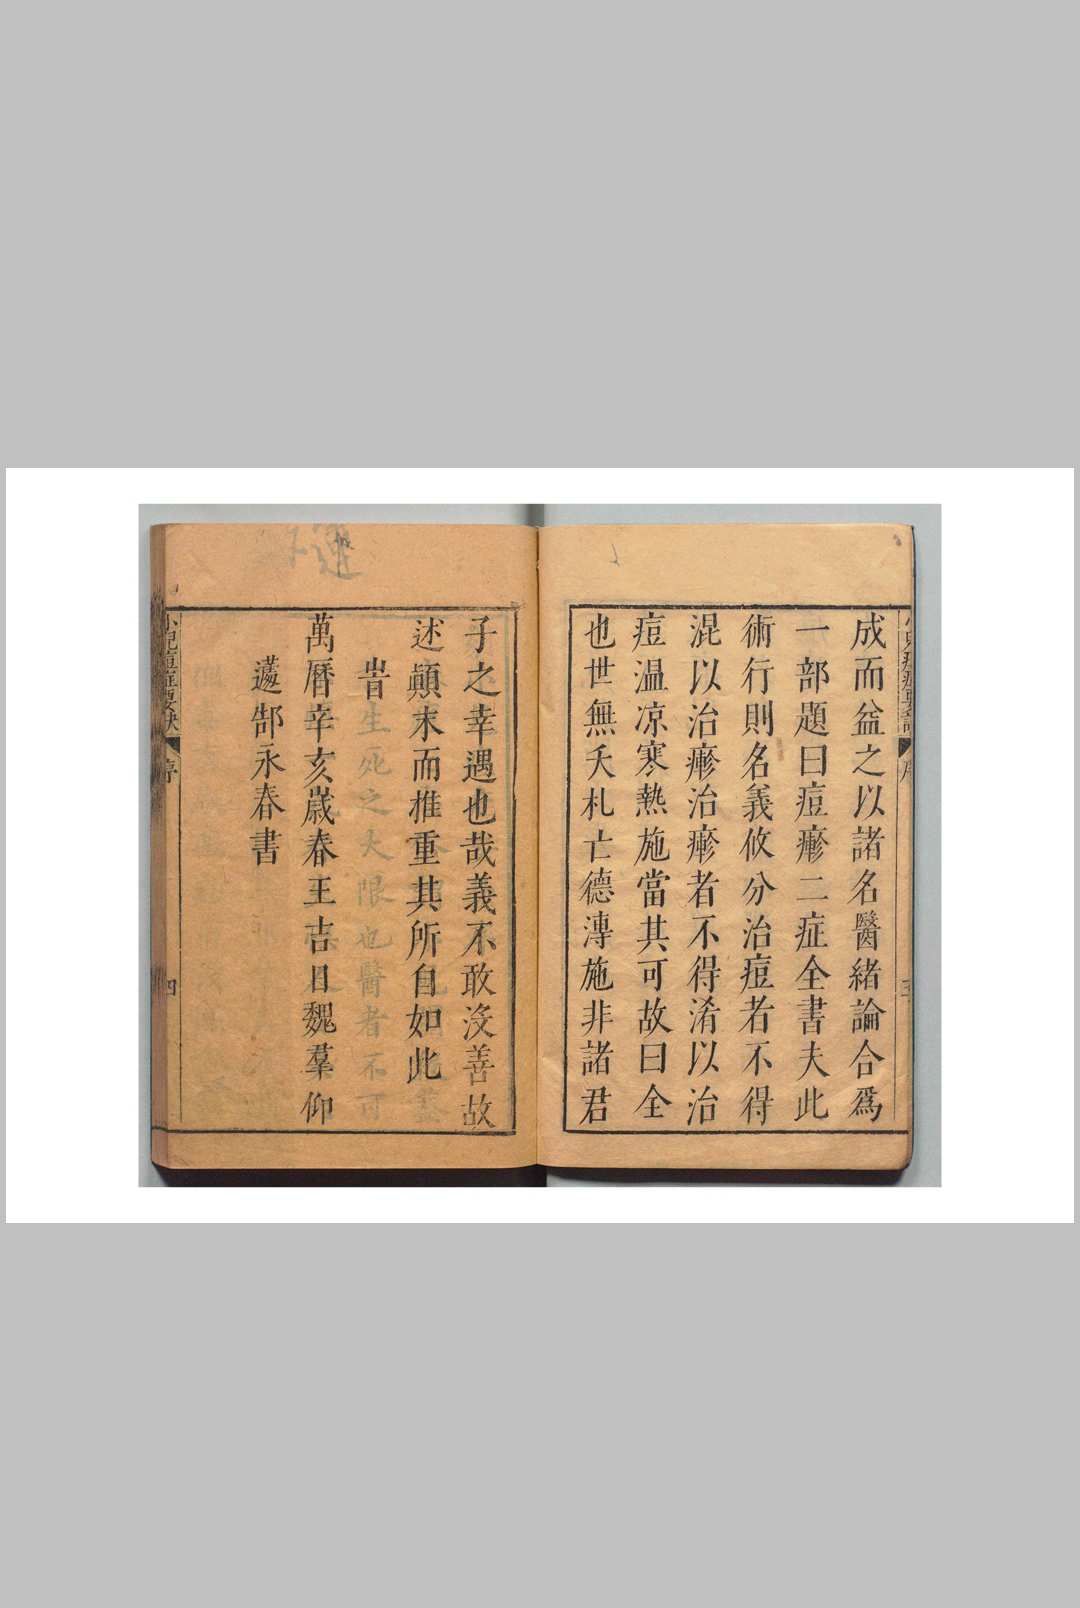 成而益之以諸名醫緒論合爲
一部題曰痘瘮二症全書夫此
術行則名義攸分治痘者不得
混以治瘮治瘮者不得淆以治
痘温凉寒熱施當其可故曰全
也世無夭札亡德漙施非諸君
子之幸遇也哉義不敢沒善故
述顛末而推重其所自如此
旹
萬曆辛亥歳春王吉日魏羣仰
蘧郜永春書
小兒痘症要訣
序
四